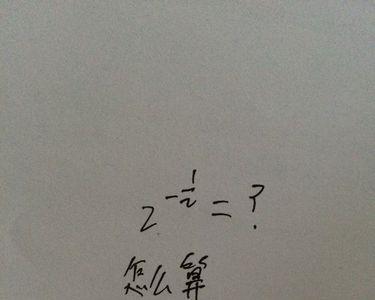 2^{-\frac{1}{2}} = ?
怎么算